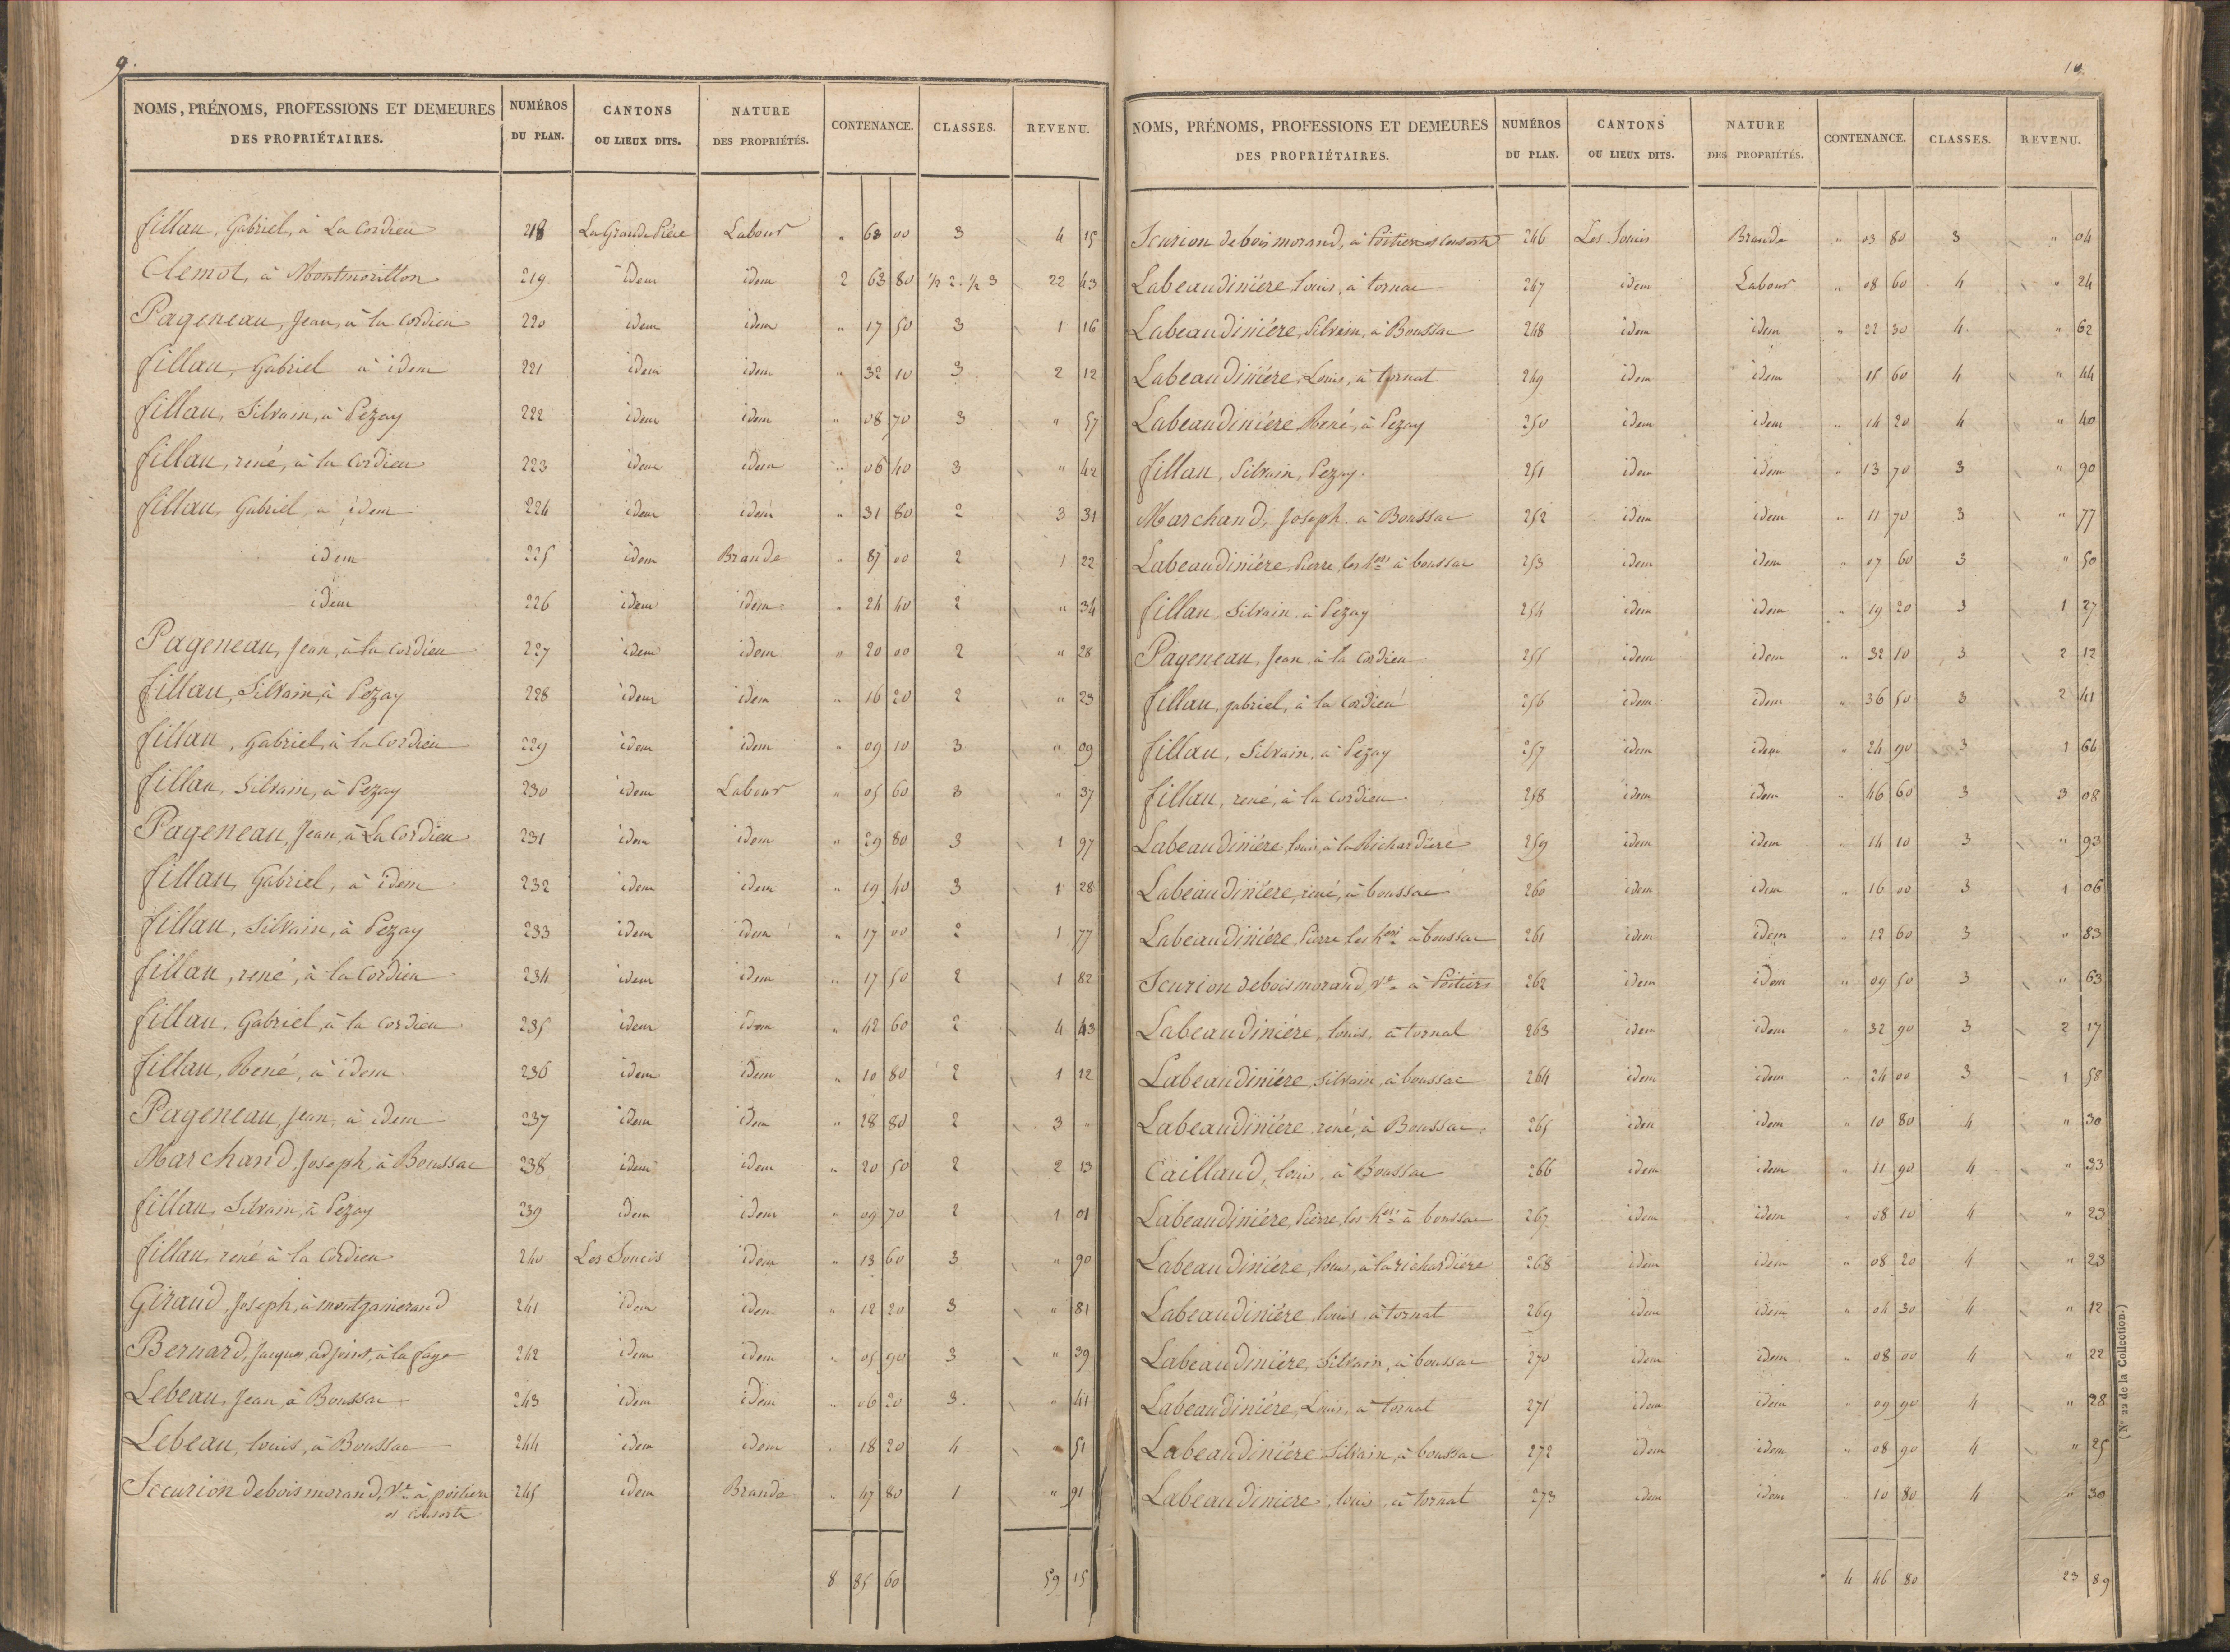 9.
NOMS, PRÉNOMS, PROFESSIONS ET DEMEURES DES PROPRIÉTAIRES. NUMÉROS DU PLAN. CANTONS OU LIEUX DITS. NATURE DES PROPRIÉTÉS. CONTENANCE. CLASSES. REVENU.
fillau, Gabriel, à La Cordieu 218 La Grande Pièce Labour " 63 00 3 4 15
Clemot, à Montmorillon 219 idem idem 2 63 80 ½ 2. ½ 3 22 43
Pageneau, Jean, à la Cordieu 220 idem idem " 17 50 3 1 16
fillau, Gabriel à idem 221 idem idem " 32 10 3 2 12
fillau, Silvain, à Pezay 222 idem idem " 08 70 3 " 57
fillau, rené, à la Cordieu 223 idem idem " 06 40 3 " 42
fillau, Gabriel, à idem 224 idem idem " 31 80 2 3 31
idem 225 idem Brande " 87 00 2 1 22
idem 226 idem idem " 24 40 2 " 34
Pageneau, Jean, à la Cordieu 227 idem idem " 20 00 2 " 28
fillau, Silvain, à Pezay 228 idem idem " 16 20 2 " 23
fillau, Gabriel, à la Cordieu 229 idem idem " 09 10 3 " 09
fillau, Silvain, à Pezay 230 idem Labour " 05 60 3 " 37
Pageneau, Jean, à La Cordieu 231 idem idem " 29 80 3 1 97
fillau, Gabriel, à idem 232 idem idem " 19 40 3 1 28
fillau, Silvain, à Pezay 233 idem idem " 17 00 2 1 77
fillau, rené, à la Cordieu 234 idem idem " 17 50 2 1 82
fillau, Gabriel, à la Cordieu 235 idem idem " 42 60 2 4 43
fillau, René, à idem 236 idem idem " 10 80 2 1 12
Pageneau, Jean, à idem 237 idem idem " 28 80 2 3 "
Marchand, Joseph, à Boussac 238 idem idem " 20 50 2 2 13
fillau, Silvain, à Pezay 239 idem idem " 09 70 2 1 01
fillau, rené à la Cordieu 240 Les Soucis idem " 13 60 3 " 90
Giraud, Joseph, à montgamerand 241 idem idem " 12 20 3 " 81
Bernard, Jacques, adjoint, à la faye 242 idem idem " 05 90 3 " 39
Lebeau, Jean, à Boussac 243 idem idem " 06 20 3. " 41
Lebeau, louis, à Boussac 244 idem idem " 18 20 4 " 51
Scourion deboismorand, Ve à poitiers 245 idem Brande " 47 80 1 " 91
et consorts
8 85 60 59 15
10.
NOMS, PRÉNOMS, PROFESSIONS ET DEMEURES DES PROPRIÉTAIRES. NUMÉROS DU PLAN. CANTONS OU LIEUX DITS. NATURE DES PROPRIÉTÉS. CONTENANCE. CLASSES. REVENU.
Scurion deboismorand, à Poitiers et consorts 246 Les Soucis Brande " 03 80 3 " 04
Labeaudiniére, louis, à tornac 247 idem Labour " 08 60 4 " 24
Labeaudiniére, Silvain, à Boussac 248 idem idem " 22 30 4. " 62
Labeaudiniére, Louis, à tornat 249 idem idem " 15 60 4 " 44
Labeaudiniére, René, à Pezay 250 idem idem " 14 20 4 " 40
fillau, Silvain, Pezay. 251 idem idem " 13 70 3 " 90
Marchand, Joseph. à Boussac 252 idem idem " 11 70 3 " 77
Labeaudiniére, Pierre, les hers à boussac 253 idem idem " 07 60 3 " 50
fillau, Silvain, à Pezay 254 idem idem " 19 20 3 1 27
Pageneau, Jean, à la Cordieu 255 idem idem " 32 10 3 2 12
fillau, gabriel, à la Cordieu 256 idem idem " 36 50 3 2 41
fillau, Silvain, à Pezay 257 idem idem " 24 90 3 1 64
fillau, rené, à la Cordieu 258 idem idem " 46 60 3 3 08
Labeaudiniére, louis, à la Richardière 259 idem idem " 14 10 3 " 93
Labeaudiniére, rené, à boussac 260 idem idem " 16 00 3 1 06
Labeaudiniére, Pierre les hers à boussac 261 idem idem " 12 60 3 " 83
Scurion deboismorand, Ve à Poitiers 262 idem idem " 09 50 3 " 63
Labeaudiniére, louis, à tornat 263 idem idem " 32 90 3 2 17
Labeaudiniére, silvain, à boussac 264 idem idem " 24 00 3 1 58
Labeaudiniére, rené, à Boussac 265 idem idem " 10 80 4 " 30
Caillaud, louis, à Boussac 266 idem idem " 11 90 4 " 33
Labeaudiniére, Pierre, les hers à boussac 267 idem idem " 08 10 4 " 23
Labeaudiniére, louis, à la richardiére 268 idem idem " 08 20 4 " 23
Labeaudiniére, louis, à tornat 269 idem idem " 04 30 4 " 12
Labeaudiniére, Silvain, à boussac 270 idem idem " 08 00 4 " 22
Labeaudiniére, Louis, à tornat 271 idem idem " 09 90 4 " 28
Labeaudiniére Silvain, à boussac 272 idem idem " 08 90 4 " 25
Labeaudiniere, louis, à tornat 273 idem idem 10 80 4 " 30
4 46 80 23 89
(N° 22 de la Collection.)